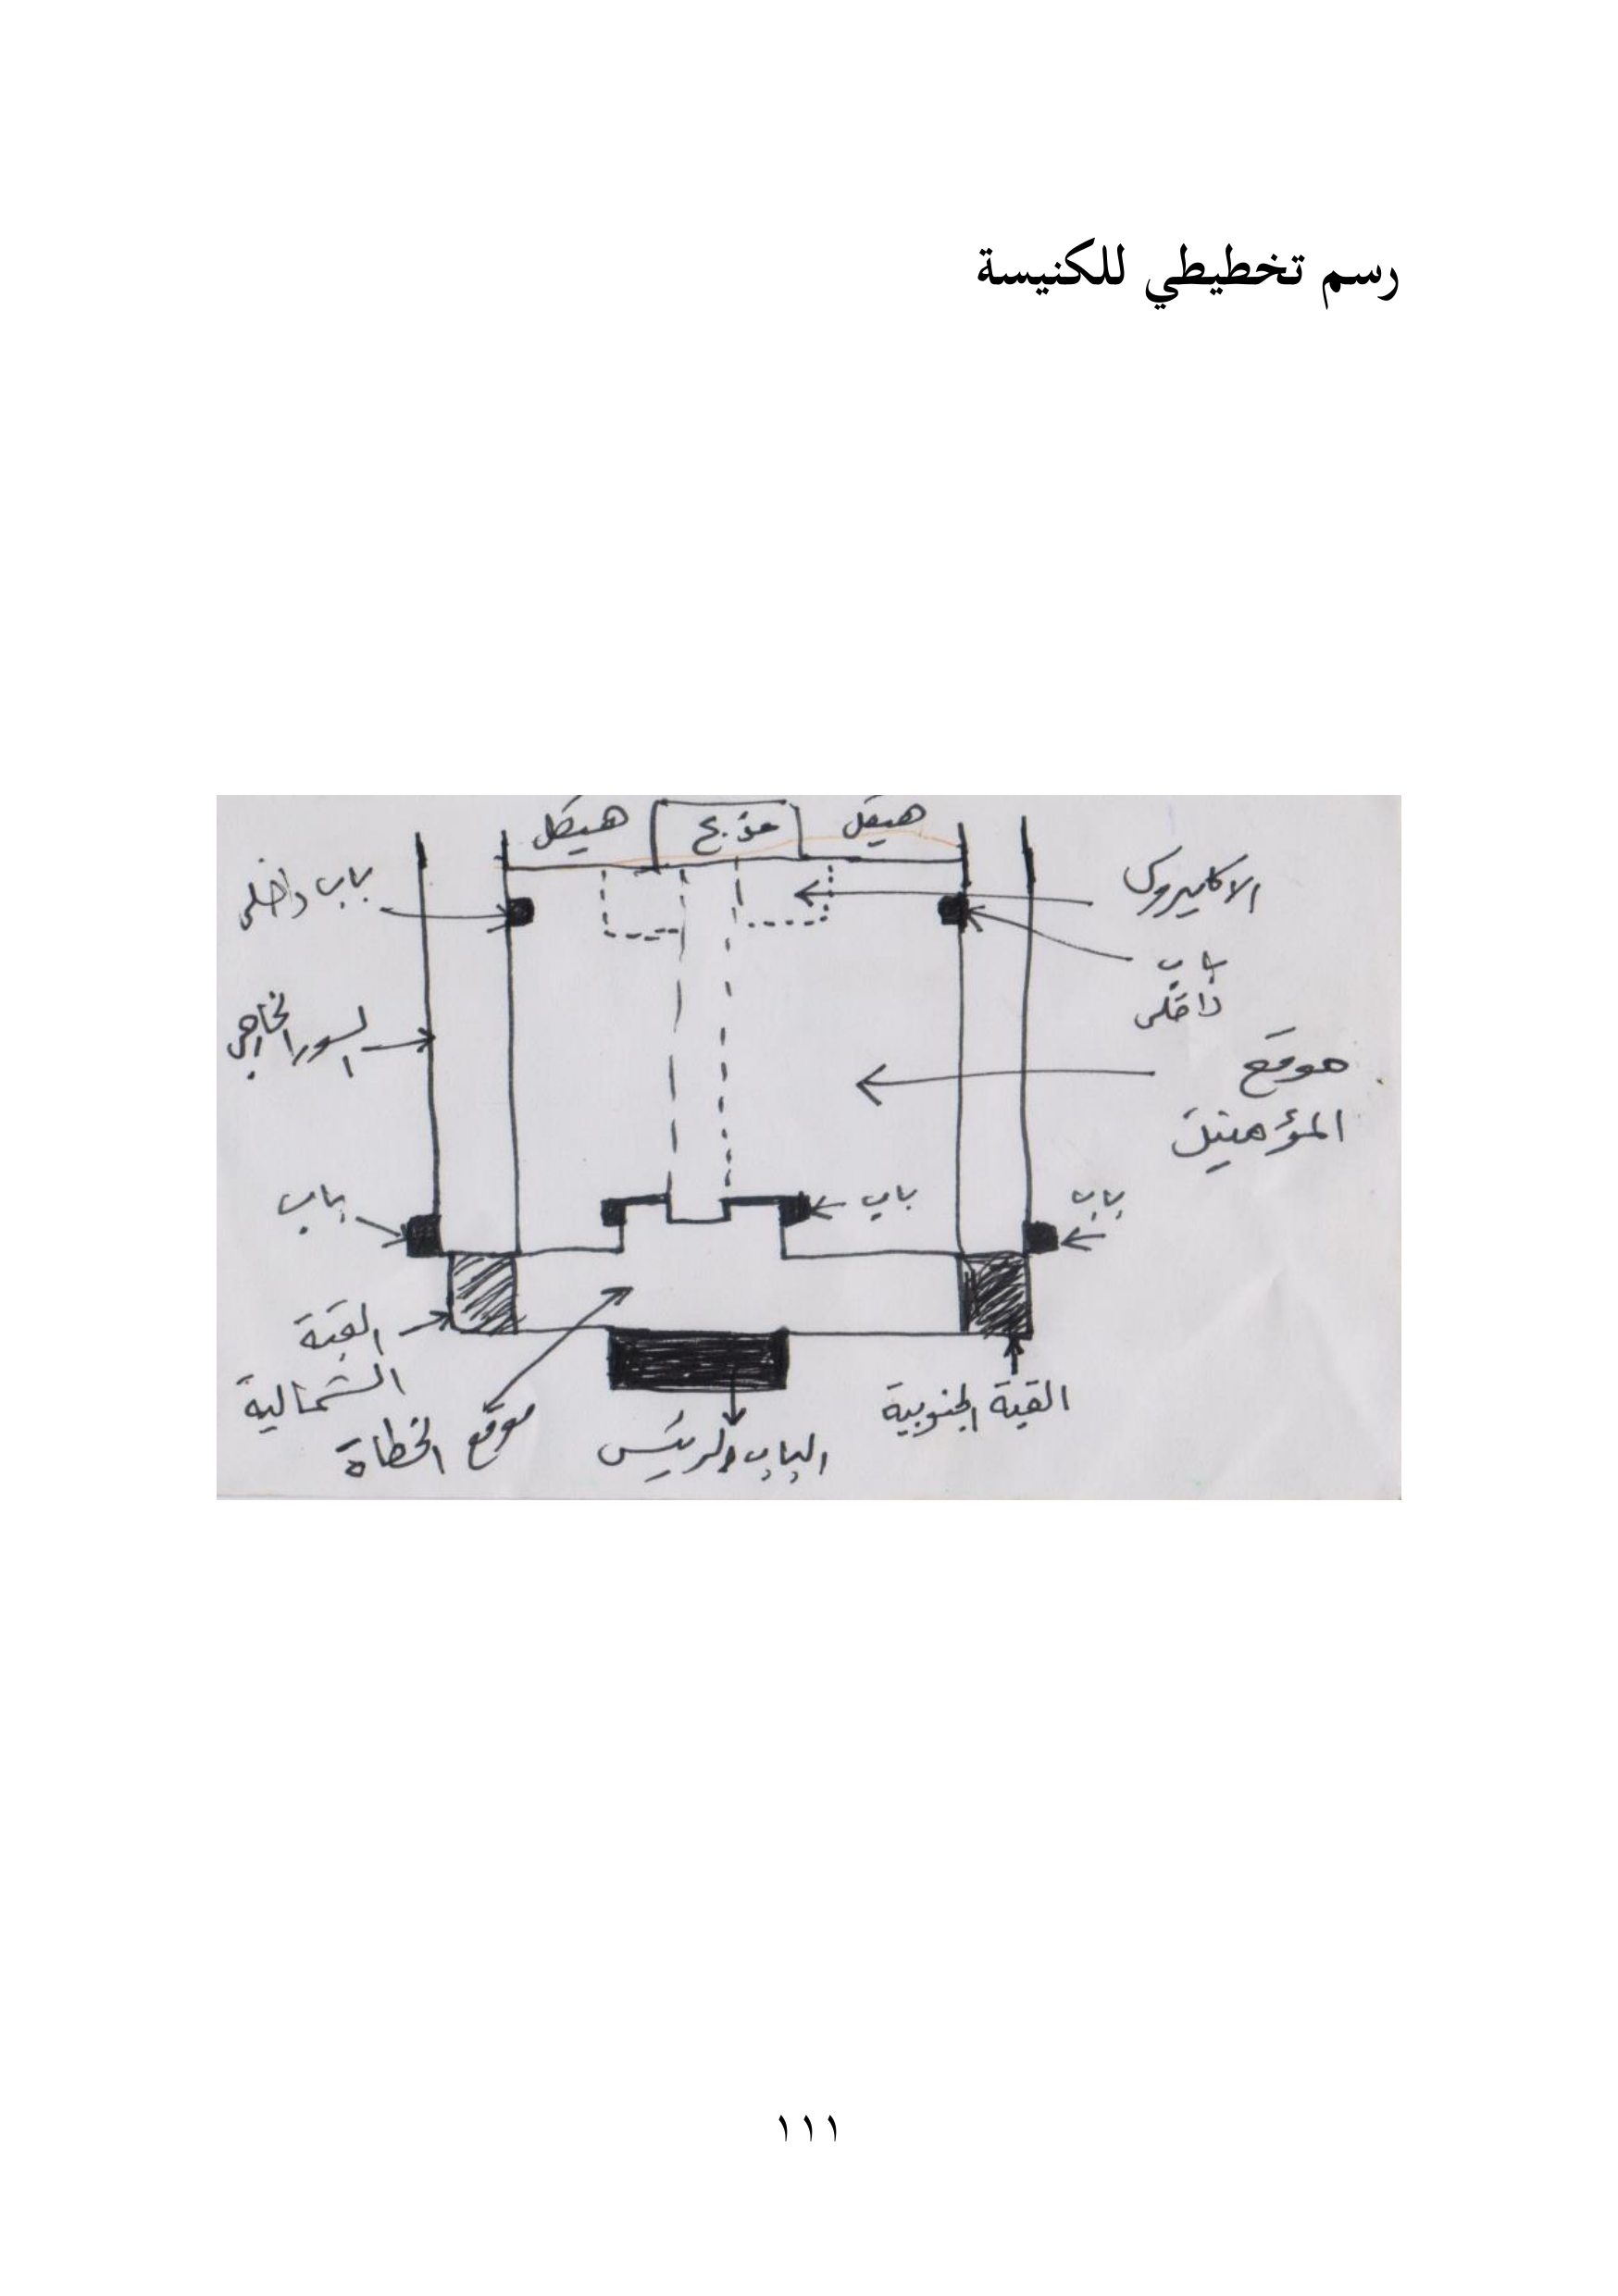 رسم تخطيطي للكنيسة
هيكل
مذبح
هيكل
باب داخلي
الاكليروس
باب
داخلي
السور الخارجي
موقع
المؤمنين
باب
باب
باب
القبة
الشمالية
موقع الخطاة
الباب الرئيس
القبة الجنوبية
١١١